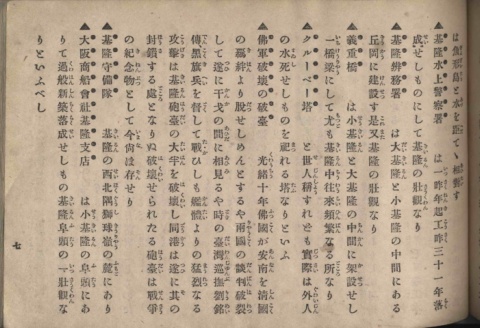 は無電局と水を距て、相對す
▲基隆水上警察署 は一昨年起工昨三十一年落
成せしものにして基隆の壯觀なり
▲基隆辨務署 は大基隆と小基隆の中間にある
丘岡に建設す是又基隆の壯觀なり
▲義重橋 は小基隆と大基隆の中間に架設せし
一橋梁にして尤も基隆中往來頻繁なる所なり
▲クルーベー塔 と世人稱すれども實際は外人
の水死せしものを祀れる塔なりといふ
▲佛軍破壞の砲臺 光緖十年佛國が安南を淸國
の羈絆より脫せしめんとするや兩國の談判破裂
して遂に干戈の間に相見るや時の臺灣巡撫劉銘
傳黑旗兵を督して戰ひしも艦體よりの猛烈なる
攻擊は基隆砲臺の大半を破壞し同港は遂に其の
封鎖する處となりぬ破壞せられたる砲臺は戰爭
の紀念物として今尙ほ存せり
▲基隆守備隊 基隆の西北隅獅球嶺の麓にあり
▲大阪商船會社基隆支店 は小基隆の阜頭にあ
りて過般新築落成せしもの基隆阜頭の一壯觀な
りといふべし
七